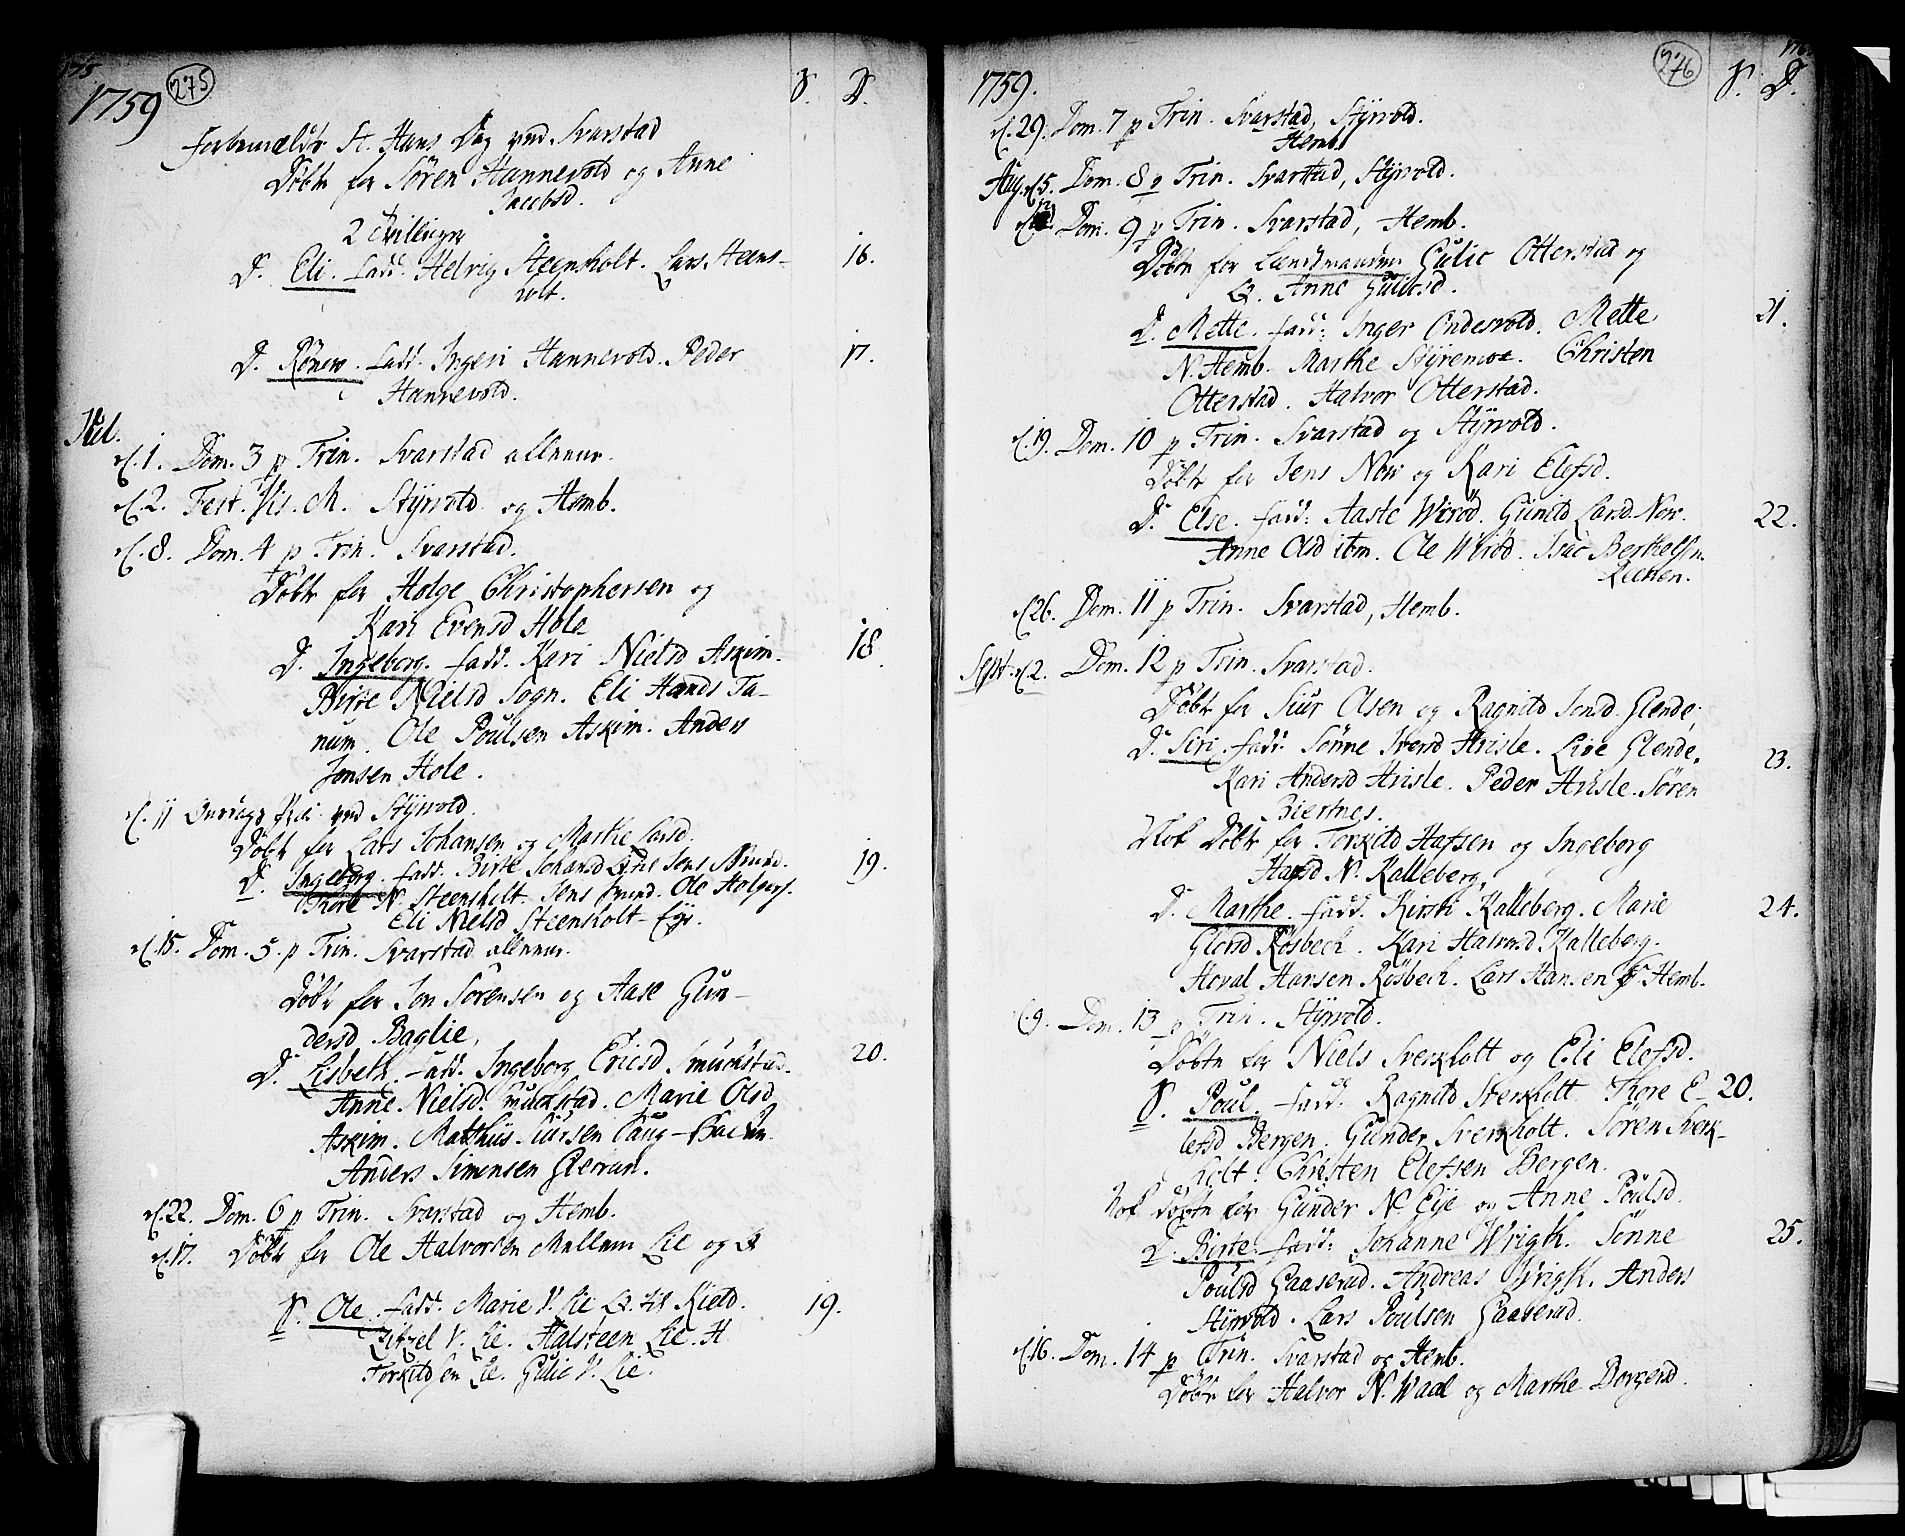 1759 275 S. D.
St. Hans Dag ved Svarstad
Døbt for Sören Hannevold og Anne
Jacobsd.
2 Tvillinger
D. Eli. Fadd. Helvig Steensholt. Lars Steens-
holt. 16.
D. Fadd. Ingeri Hannevold. Peder 17.
Hannevold.
Jul.
d. 1. Dom. 3 p Trin. Svarstad allene.
d. 2. Fest. Vis. M. Styrvold og Hemb.
d. 8. Dom. 4 p Trin. Svarstad.
Døbt for Holge Christophersen og
Kari Evensd Hole
D. Ingeborg. Fadd. Kari Nielsd Askim. 18
Birte Nielsd Sogn. Eli Hansd Ta-
num. Ole Poulsen Askim. Anders
Jonsen Hole.
d. 11 ved Styrvold.
Døbt for Lars Johansen og Marthe Larsd.
D. Ingeborg. Fadd. Birte Johansd Jens 19.
N. Steensholt. Jens Ole Holgers.
Eli Nielsd Steensholt-Eje.
d. 15. Dom. 5. p Trin. Svarstad allene.
Døbt for Jon Sörensen og Aase Gun-
dersd Baglie,
D. Lisbeth. Fadd. Ingeborg Ericsd 20.
Anne Nielsd. Marie Olsd
Askim. Matthis
Anders Simensen
d. 22. Dom. 6 p Trin. Svarstad og Hemb.
d. 17. Døbt for Ole Halvorsen Mellem Lie og Q
S. Ole. Fadd. Marie N. Lie Q. til Kield. 19.
N. Lie. Halsteen Lie. H
Torkildsen Lie. Gulic N. Lie.
1759. 276 S. D.
d. 29. Dom. 7 p Trin. Svarstad, Styrvold.
Hemb.
Aug. d. 5. Dom. 8 p Trin. Svarstad, Styrvold.
d. 12 Dom. 9 p Trin. Svarstad, Hemb.
Døbt for Landmanden Gulic Otterstad og
Q. Anne Gulicsd.
D. Mette. Fadd: Inger Endesvold. Mette 21.
N. Hemb. Marthe Styremoe. Christen
Otterstad. Halvor Otterstad.
d. 19. Dom. 10 p Trin. Svarstad og Styrvold.
Døbt for Jens Now og Kari Elefsd.
D. Else. Fadd: Aaste Wiröd. Gunild Larsd. Now. 22.
Anne Olsd itm. Ole Wiröd. Isac Berthelsen
d. 26. Dom. 11 p Trin. Svarstad, Hemb.
Sept. d. 2. Dom. 12 p Trin. Svarstad.
Døbt for Siur Olsen og Ragnild Jonsd. Glende,
D. Siri. Fadd. Sönne Iversd Hvisle. Live Glende. 23.
Kari Andersd Hvisle. Peder Hvisle. Sören
Biertnes.
Nok Døbt for Torkild Hafsen og Ingeborg
Hansd N. Kalleberg,
D. Marthe. Fadd. Kirsti Kalleberg. Marie 24.
Rösbech. Kari Halvord Kalleberg.
Hoval Hansen Rösbech. Lars Hansen Hemb.
d. 9. Dom. 13 p Trin. Styrvold.
Døbt for Niels Sverkholt og Eli Elefsd.
S. Poul. Fadd. Ragnild Sverkholt. Thore E- 20.
lefsd Bergen. Gunder Sverkholt. Sören Sverk-
holt. Christen Elefsen Bergen.
Nok Døbt for Gunder N. Eye og Anne Poulsd.
D. Birte. Fadd: Johanne Wrigh. Sönne 25.
Poulsd Gaaserud. Andreas Wrigh. Anders
Styrvold. Lars Poulsen Gaaserud.
d. 16. Dom. 14 p Trin. Svarstad og Hemb.
Døbt for Halvor N. Waal og Marthe